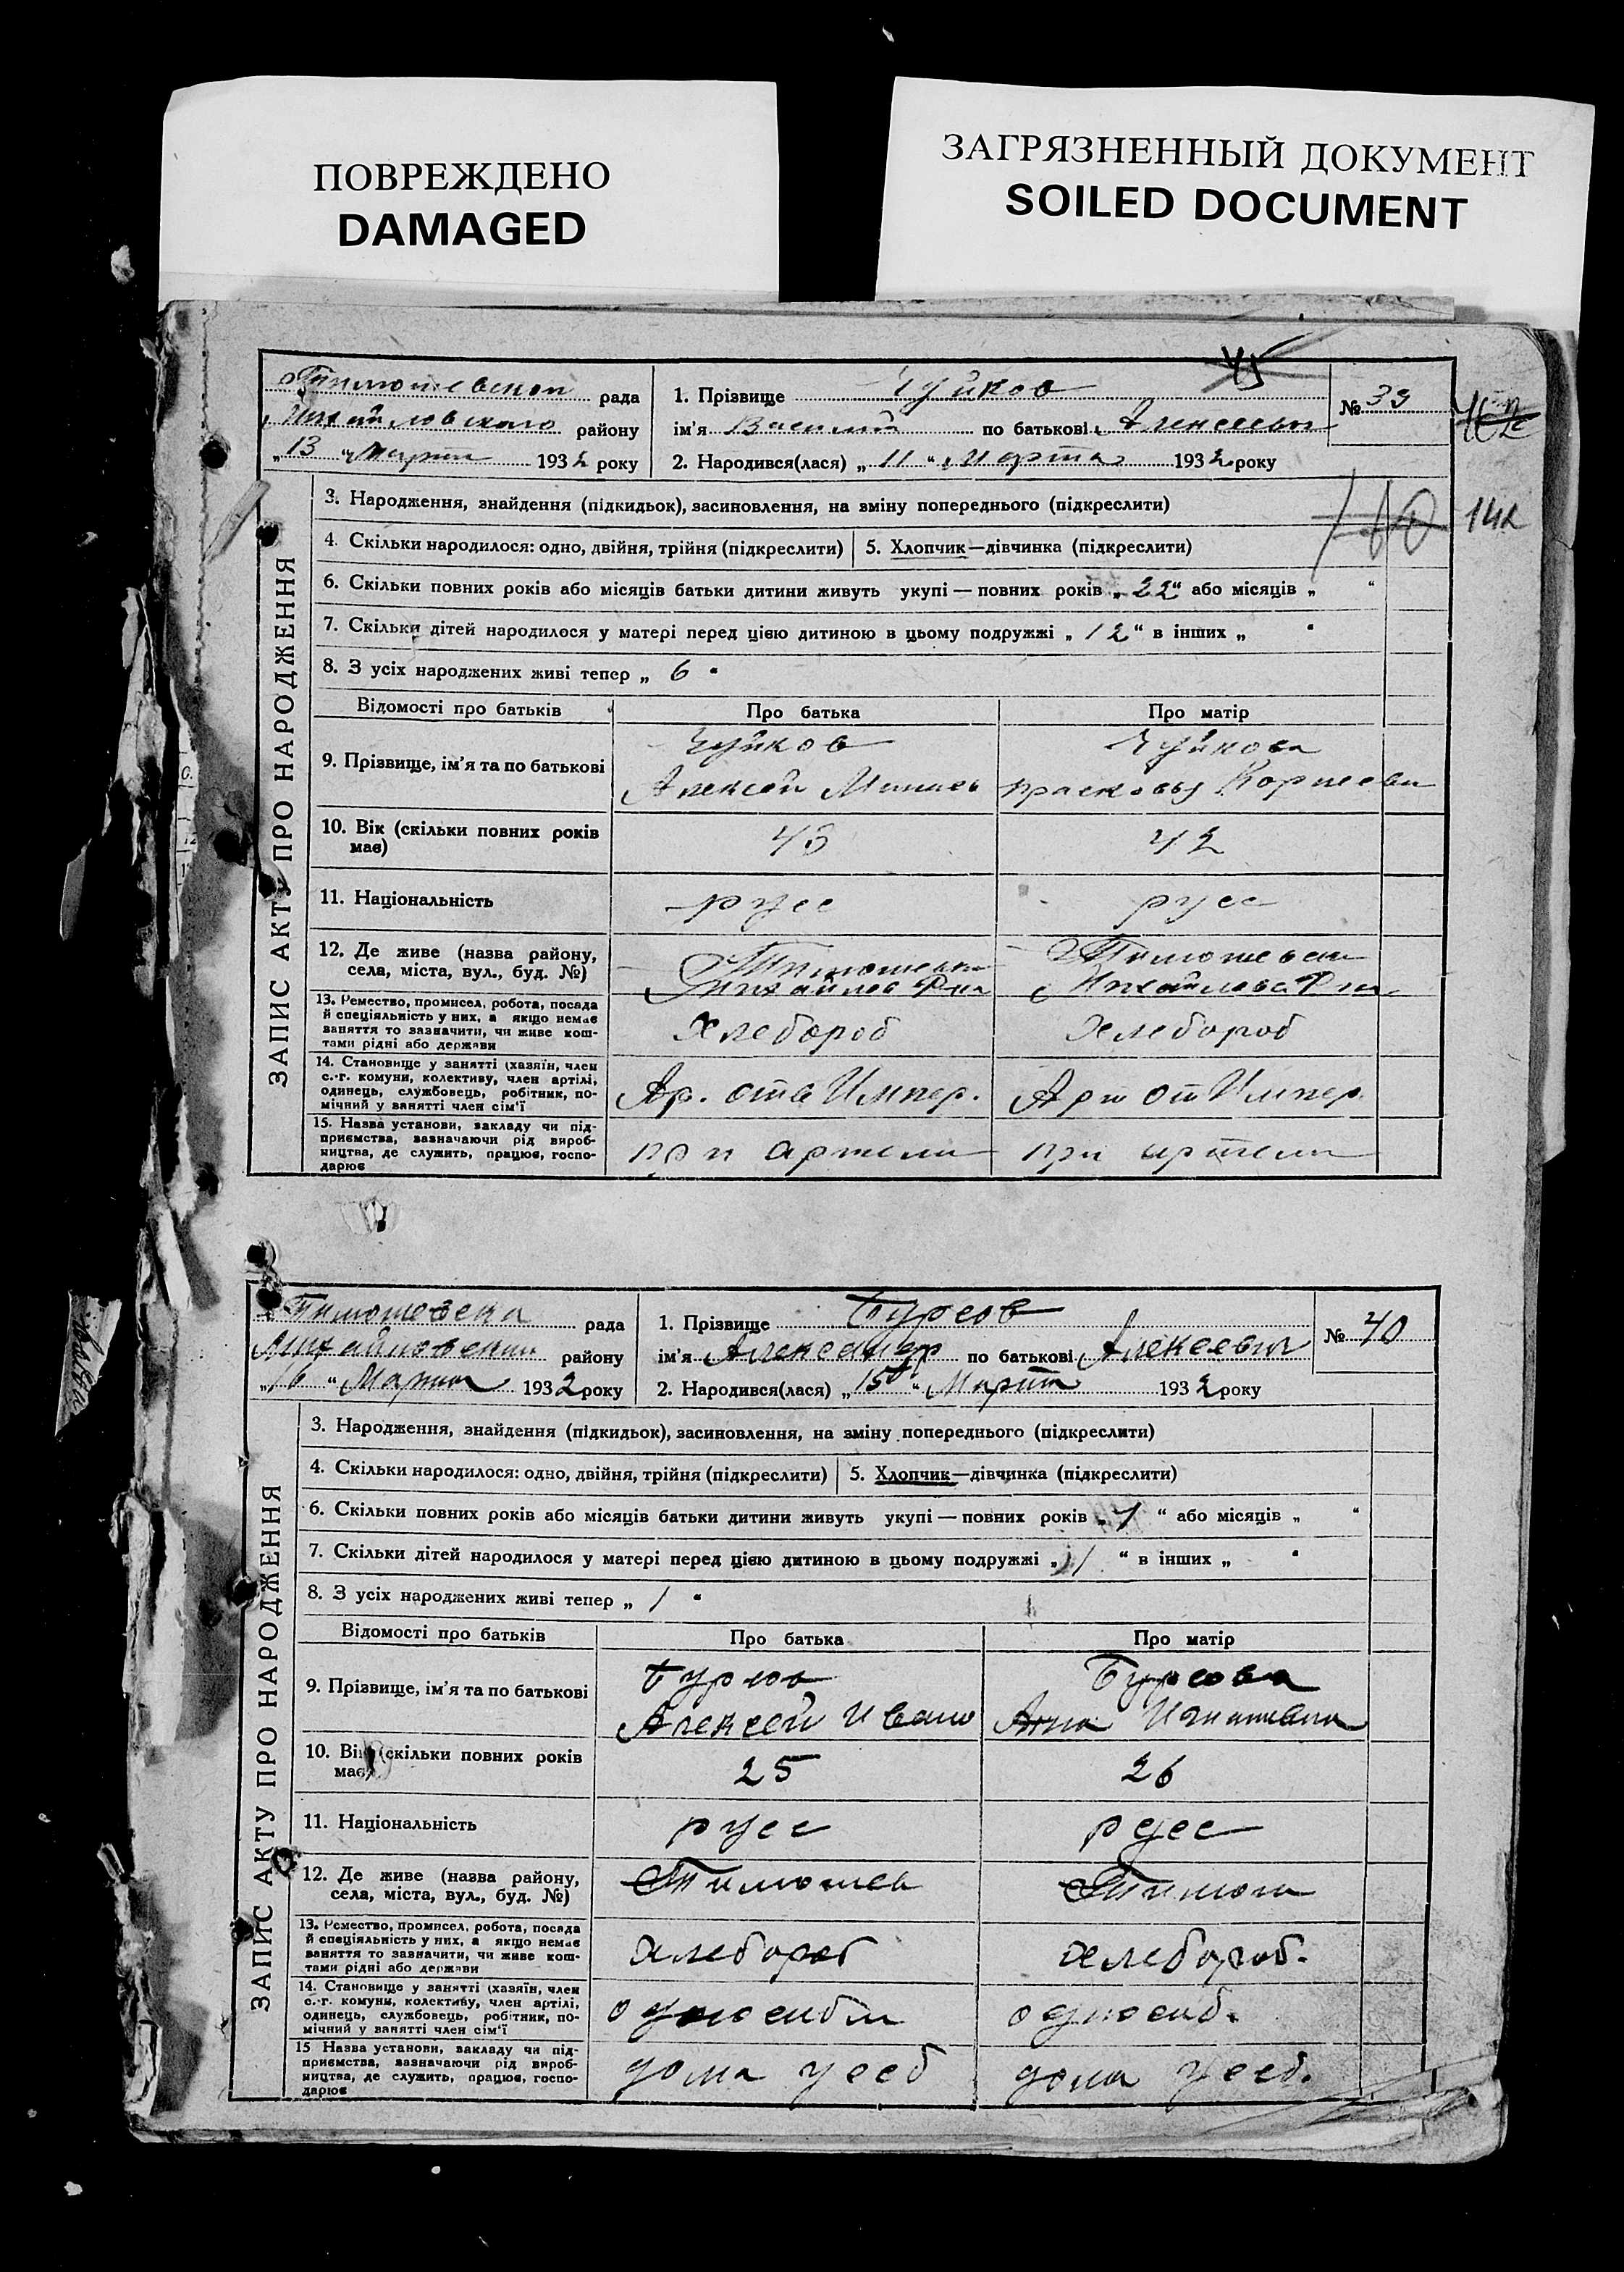 ПОВРЕЖДЕНО
DAMAGED
ЗАГРЯЗНЕННЫЙ ДОКУМЕНТ
SOILED DOCUMENT
рада
району
„13“ 1932 року
1. Прізвище Чуйков
ім’я Василий по батькові Алексеевич
2. Народився(лася) „11“ Марта 1932 року
№ 39
142
ЗАПИС АКТУ ПРО НАРОДЖЕННЯ
3. Народження, знайдення (підкидьок), засиновлення, на зміну попереднього (підкреслити)
4. Скільки народилося: одно, двійня, трійня (підкреслити)
5. Хлопчик—дівчинка (підкреслити)
6. Скільки повних років або місяців батьки дитини живуть укупі — повних років „22“ або місяців „ “
7. Скільки дітей народилося у матері перед цією дитиною в цьому подружжі „12“ в інших „ “
8. З усіх народжених живі тепер „6“
Відомості про батьків
Про батька
Про матір
9. Прізвище, ім’я та по батькові
Чуйков
Алексей
Чуйкова
10. Вік (скільки повних років має)
42
11. Національність
русс
русс
12. Де живе (назва району,
села, міста, вул., буд. №)
13. Ремество, промисел, робота, посада
й спеціяльність у них, а якщо немає
заняття то зазначити, чи живе кош-
тами рідні або держави
Хлебороб
хлебороб
14. Становище у занятті (хазяїн, член
с.-г. комуни, колективу, член артілі,
одинець, службовець, робітник, по-
мічний у занятті член сім’ї
15. Назва установи, закладу чи під-
приємства, зазначаючи рід вироб-
ництва, де служить, працює, госпо-
дарює
при артели
при артели
рада
району
„16“ Марта 1932 року
1. Прізвище Бурсов
ім’я Александр по батькові Алексеевич
2. Народився(лася) „15“ Марта 1932 року
№ 40
ЗАПИС АКТУ ПРО НАРОДЖЕННЯ
3. Народження, знайдення (підкидьок), засиновлення, на зміну попереднього (підкреслити)
4. Скільки народилося: одно, двійня, трійня (підкреслити)
5. Хлопчик—дівчинка (підкреслити)
6. Скільки повних років або місяців батьки дитини живуть укупі — повних років „ “ або місяців „ “
7. Скільки дітей народилося у матері перед цією дитиною в цьому подружжі „1“ в інших „ “
8. З усіх народжених живі тепер „1“
Відомості про батьків
Про батька
Про матір
9. Прізвище, ім’я та по батькові
Алексей Ивано
Бурсова
Анна
10. Вік (скільки повних років
має)
25
26
11. Національність
русс
русс
12. Де живе (назва району,
села, міста, вул., буд. №)
Тимошев
Тимош
13. Ремество, промисел, робота, посада
й спеціяльність у них, а якщо немає
заняття то зазначити, чи живе кош-
тами рідні або держави
хлебороб
хлебороб.
14. Становище у занятті (хазяїн, член
с.-г. комуни, колективу, член артілі,
одинець, службовець, робітник, по-
мічний у занятті член сім’ї
15 Назва установи, закладу чи під-
приємства, зазначаючи рід вироб-
ництва, де служить, працює, госпо-
дарює
дома у себ
дома у себ.